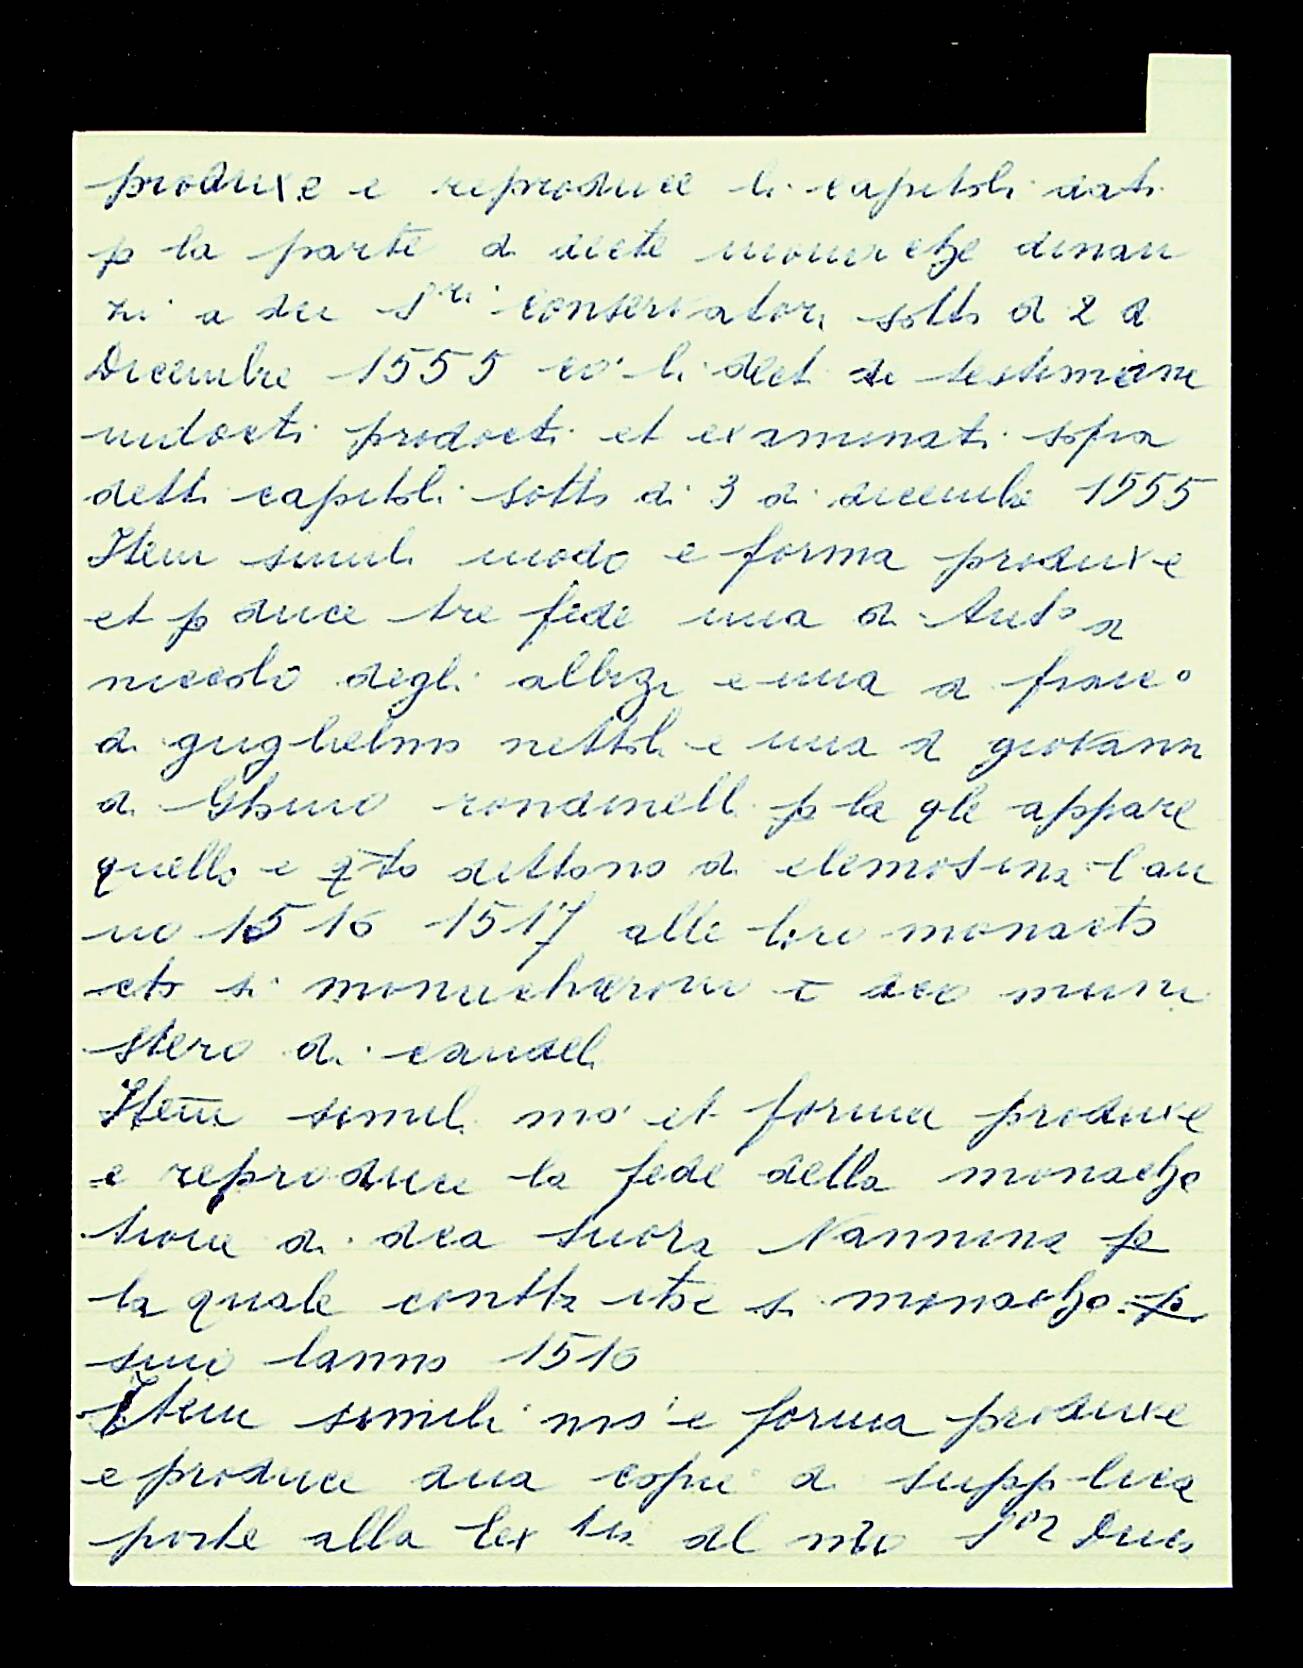 produxe e reproduce li capitoli dati
p la parte di dicte monache dinan
zi a dei S.ri conservatori sotto di 2 di
Dicembre 1555 co' li dect de testimone
indocti prodocti et examinati sopra
detti capitoli sotto di 3 di dicembre 1555
Item simili modo e forma produxe
et p duce tre fede una di Ant.o di
niccolò degli albizi e una di franc.o
di guglielmo nettoli e una di giovanni
di Ghino rondinelli p la qle appare
quello e q.to dettono di elemosina l an
no 1516 1517 alle loro monache
che si monacharono ī deo muni
stero di candeli
Item simili mo' et forma produxe
e reproduce la fede della monacha
tione di dea suora Nannina p
la quale contta che si monacho p
sino lanno 1516
Item simili mo' e forma produxe
e produce dua copie di supplica
porte alla Ecx tia del nr̄o S.or Duca